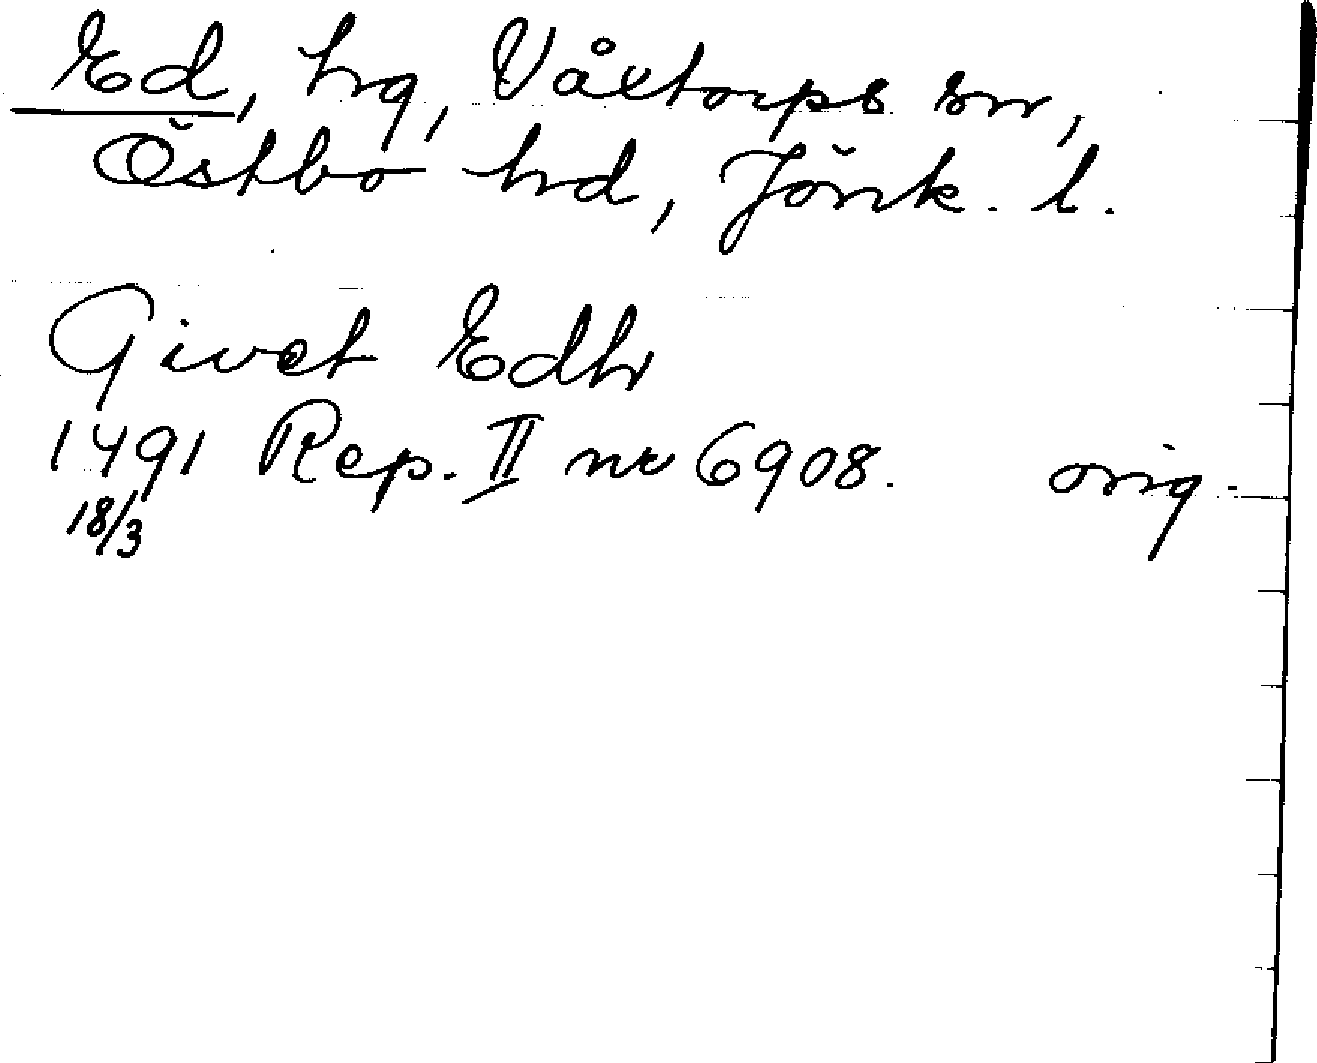 Ed, hg, Våxtorps sn,
Östbo hd, Jönk. l.
Givet Edh
1491 Rep. II nr 6908. orig.
18/3